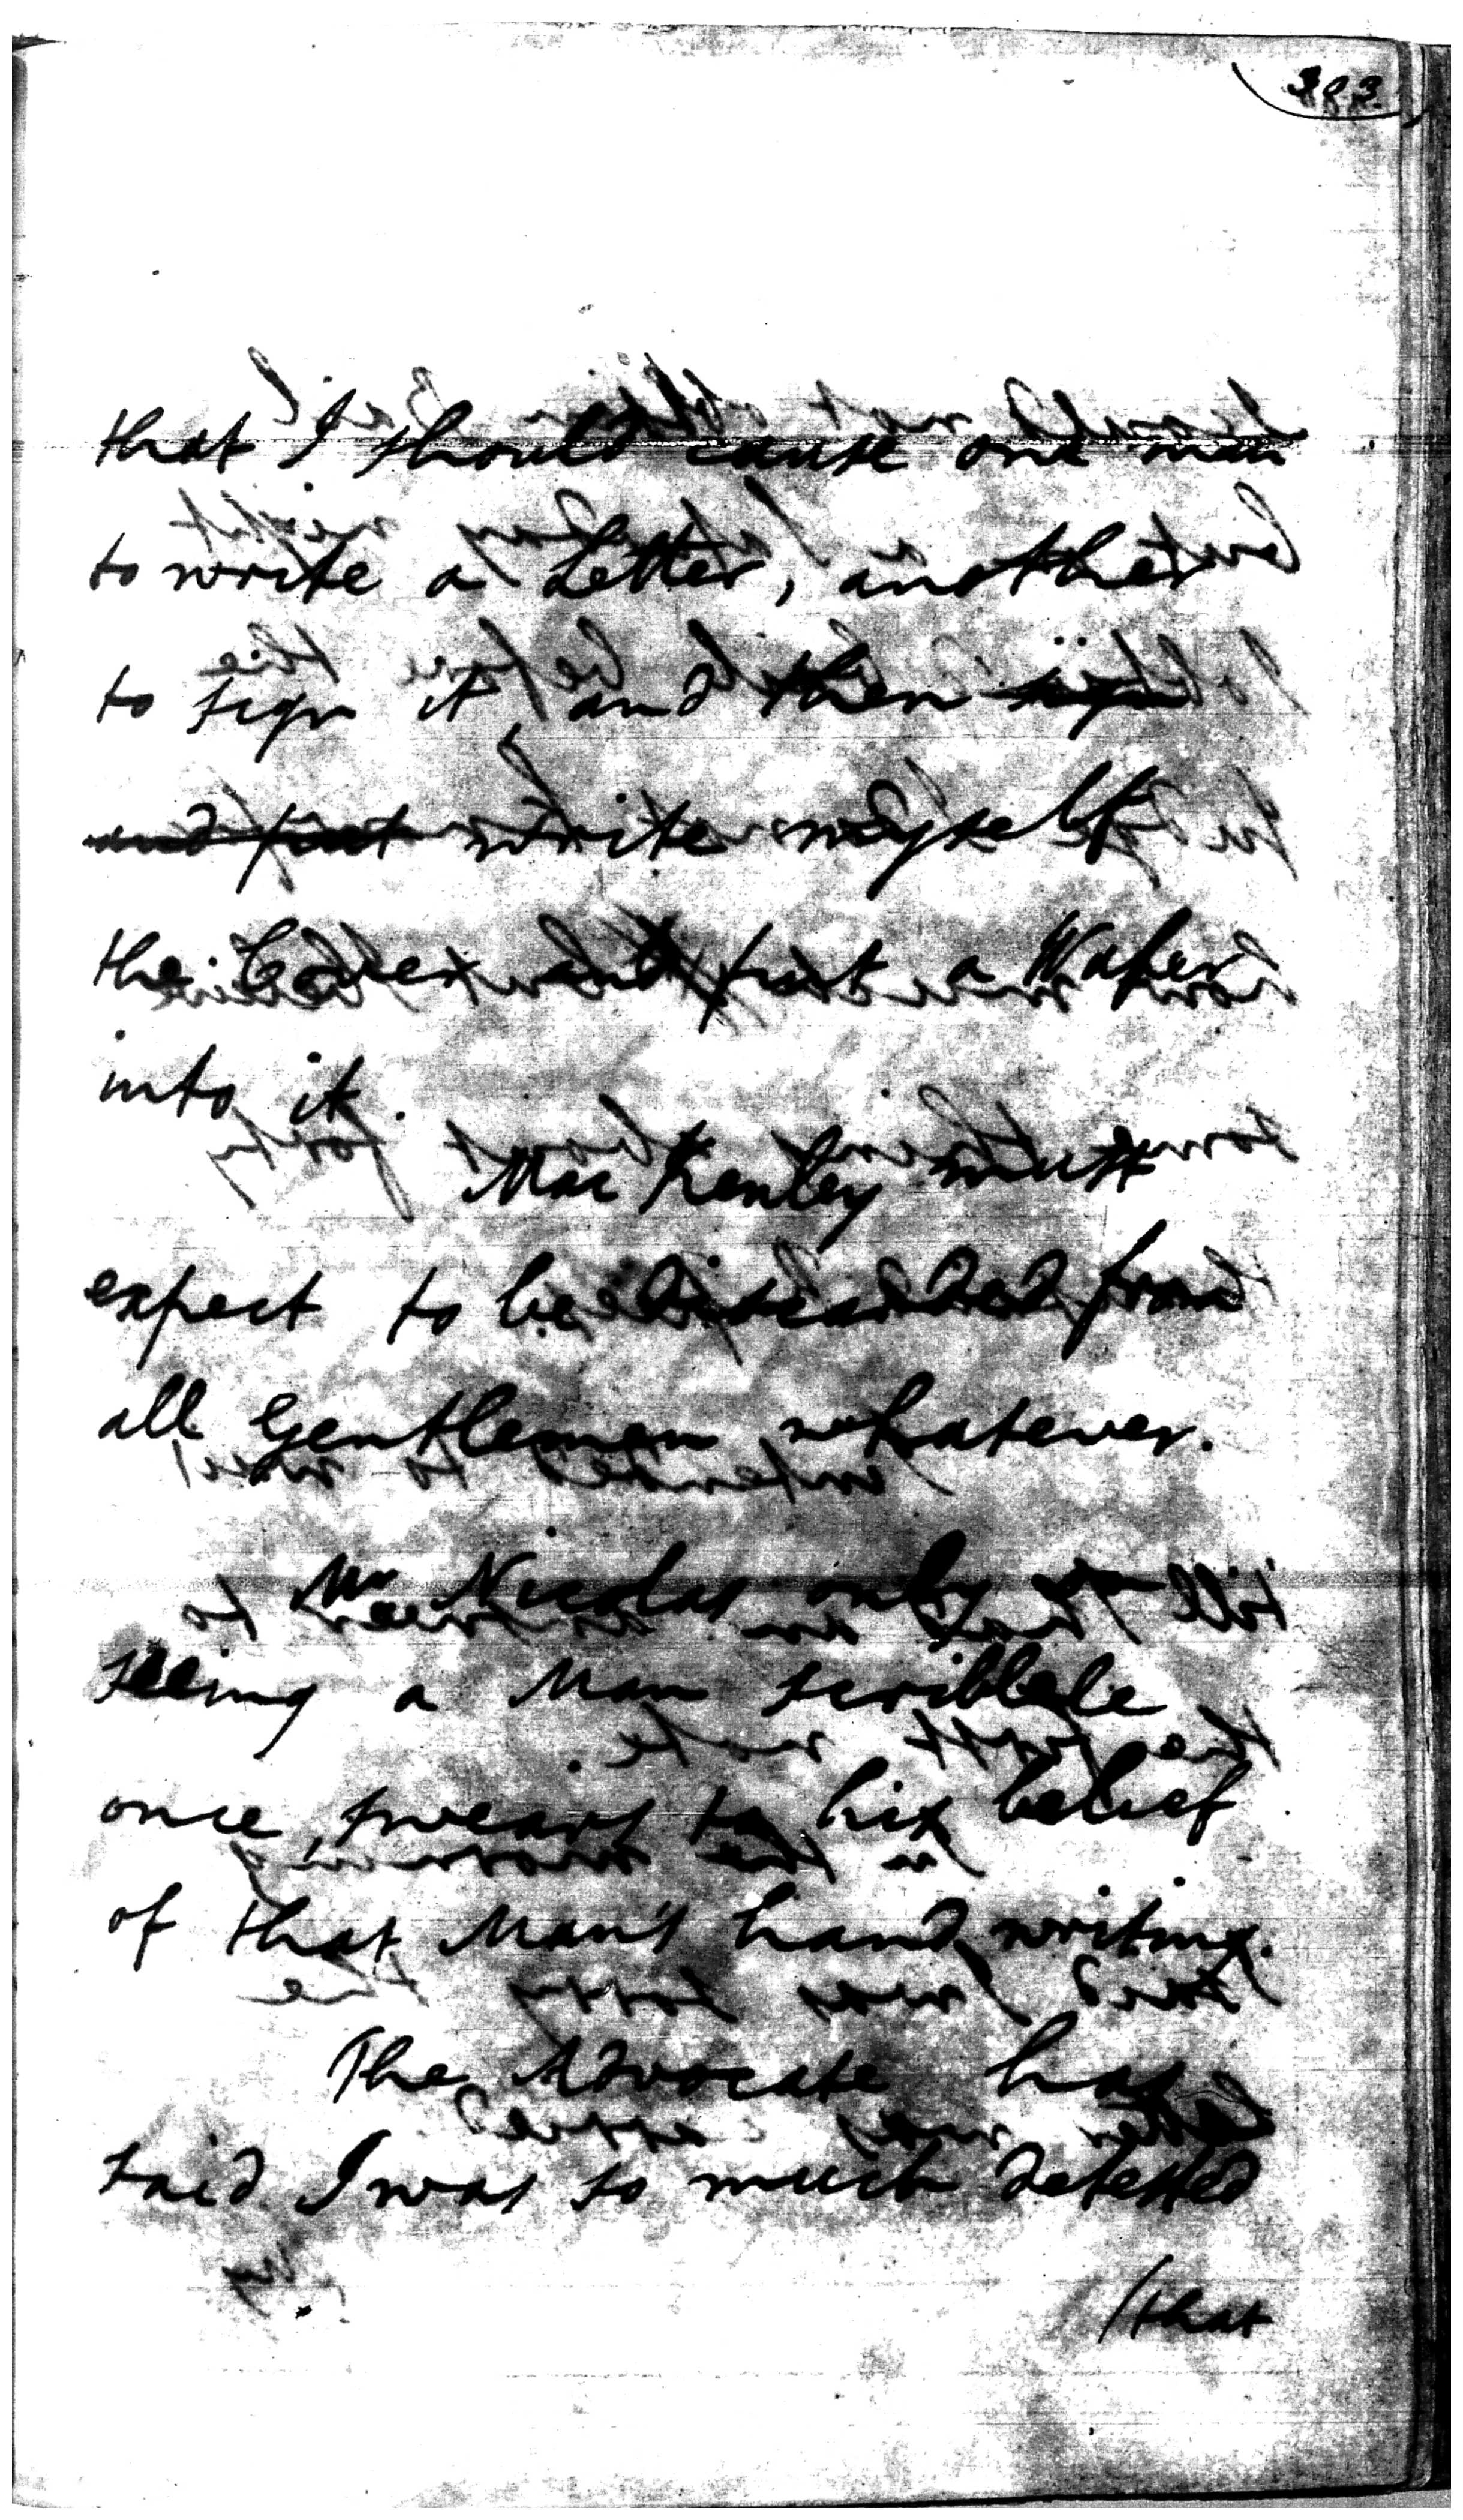 303
that I should cause one man
to write a Letter, another
to sign it, and then sign
and put write myself
the Cover and put a Wafer
into it.
Mac Kenley must
expect to be discarded from
all Gentlemen whatever.
Mr Nicolas only
seeing a Man scribble
once, swears to his belief
of that Man's hand writing.
The Advocate has
said I was so much detested
/that